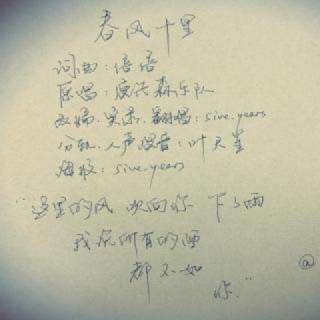 春风十里
词曲：倍倍
原唱：鹿先森乐队
改编. 翻唱：sive.years
分轨.人声混音：叶天星
海报：sive.years
"这里的风 吹向你 下了雨
我说所有的酒
都不如
你"